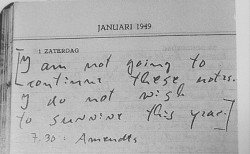 JANUARI 1949
1 ZATERDAG
[I am not going to
continue these notes.
I do not wish
to survive this year.]
7.30: Amendts